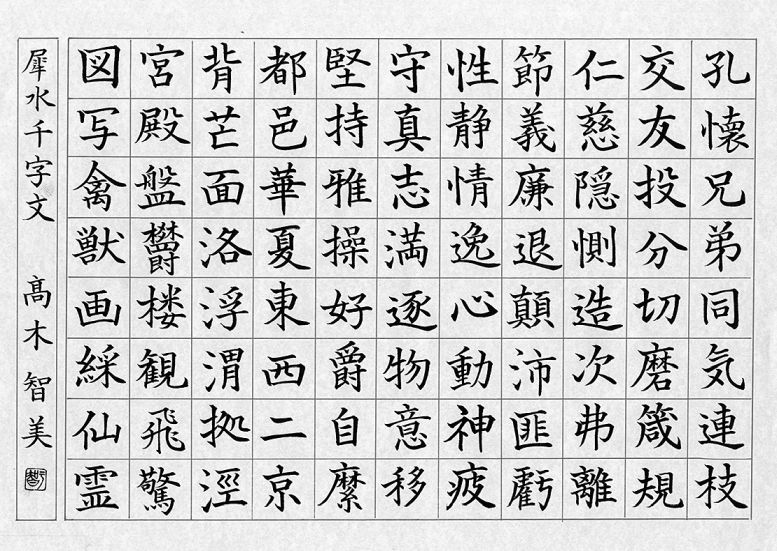 孔懐兄弟同気連枝
交友投分切磨箴規
仁慈隠惻造次弗離
節義廉退顛沛匪虧
性静情逸心動神疲
守真志満逐物意移
堅持雅操好爵自縻
都邑華夏東西二京
背芒面洛浮渭拠涇
宮殿盤欝楼観飛驚
図写禽獣画綵仙霊
犀水千字文 髙木智美